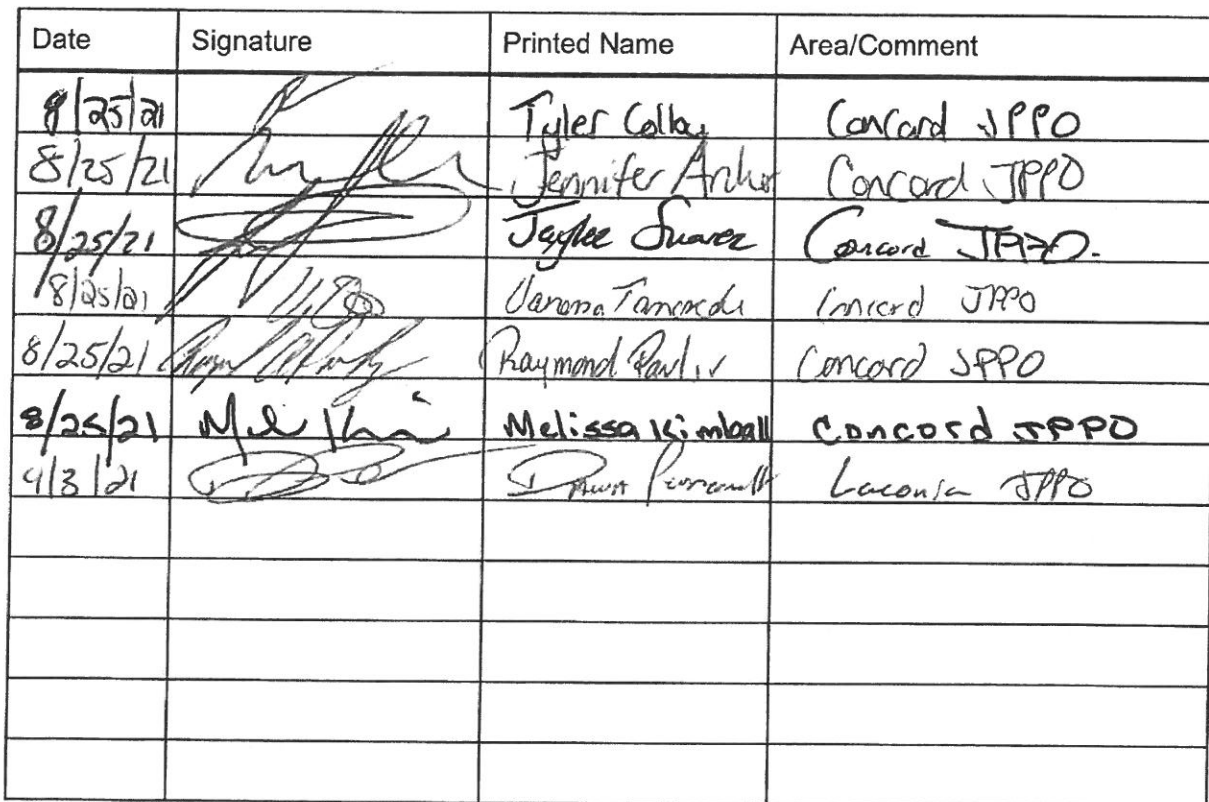 Date Signature Printed Name Area/Comment
8/25/21 Tyler Colby Concord JPPO
8/25/21 Jennifer Concord JPPO
8/25/21 Jaylee Suarez Concord JPPO.
8/25/21 Concord JPPO
8/25/21 Raymond Concord JPPO
8/25/21 Melissa Kimball Concord JPPO
9/3/21 Laconia JPPO